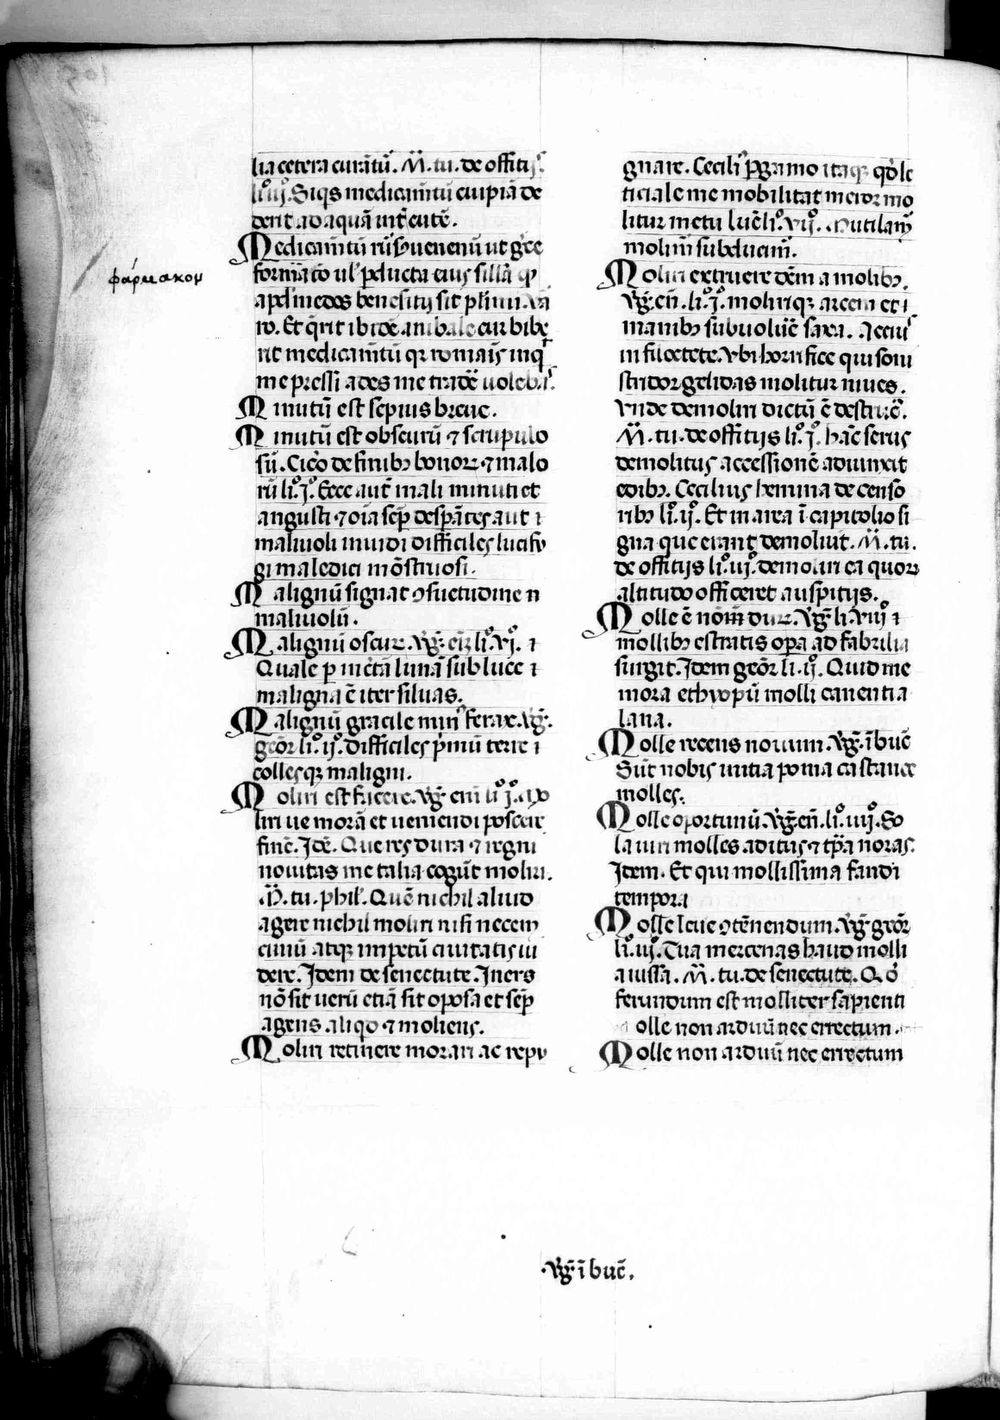 lia cetera curãtũ. M̃. tu. de offitijs
liº.iijº. Siqs medicam̃tũ cuipiã de
derit ad aquã int̃ cutẽ.
Medicam̃tũ rũsũ uenenũ ut gẽe
φάρμακον
formatõ ul' pducta eius sillã
apd' medos benefitijs sit plimũ. Va
ro. Et q̃rit ibidẽ anibal cur bibe
rit medicam̃tũ qr romaĩs inqt
me pressi ades me tradẽ uolebas.
Minutũ est sepius breue.
Minutũ est obscurũ ⁊ scrupulo
sũ. Cicõ de finibꝫ bonoꝝ ⁊ malo
rũ liº.jº. Ecce aut̃ mali minuti et
angusti ⁊ oĩa sep̃ despãtes aut ĩ
maliuoli inuidi difficiles lucifu
gi maledici mõstruosi.
Malignũ signat ꝯsuetudine ñ
maliuolũ.
Malignũ oscuꝝ. Vg̃. eñ liº.vjº. ĩ
Quale p incẽtã lunã sub luce ĩ
maligna ẽ iter siluas.
Malignũ gracile minus ferax. Vg̃.
geõr liº.ijº. difficiles pimũ terre ĩ
collesqꝫ maligni.
Moliri est facere. Vg̃ eñi liº.jº. mo
liri ue morã et ueniendi poscere
finẽ. Idẽ. Que res dura ⁊ regni
nouitas me talia cogũt moliri.
M̃. tu. phil. Quẽ nichil aliud
agere nichil moliri nisi necem
ciuiũ atqꝫ impetũ ciuitatis ui
dere. Idem de senectute. Iners
nõ sit uerũ etiã sit oposa et sep̃
agens aliqd ⁊ moliens.
Moliri retinere morari ac repu
gnare. Cecilius pgamo itaqꝫ qd' le
ticiale me mobilitat meror mo
litur metu Lucẽ liº.vijº. Rutilam̃
molim̃ subducim̃.
Moliri extruere dẽm a molibꝫ.
Vg̃. eñ. liº.jº. moliriqꝫ arcem et ĩ
manibꝫ subuoluẽ saxa. Accius
in filoctete. Vbi horrifice qui soni
stridor gelidas molitur niues.
Vnde demoliri dictũ ẽ destruẽ.
M̃. tu. de offitijs liº.jº. hãc serius
demolitus accessionẽ adiunxit
edibꝫ. Cecilius hemina de censo
ribꝫ liº.ijº. Et in area ĩ capitolio si
gna que erant demoliut. M̃. tu.
de offitijs liº.iijº. demoliri ea quoꝝ
altitudo officeret auspitijs.
Molle ẽ nõm̃ duꝝ. Vg̃ li.viijº ĩ
mollibꝫ estratis opa ad fabrilia
surgit. Idem geõr li.ijº. Quid me
mora ethyopũ molli canentia
lana.
Molle recens nouum. Vg̃. ĩ buc̃
Sũt nobis mitia poma castanee
molles.
Molle oportunũ. Vg̃ eñ. liº.iiijº. So
la uiri molles aditus ⁊ tp̃a noras.
Idem. Et qui mollissima fandi
tempora
Molle leue ꝯtẽnendum. Vg̃ geõr
liº.iijº. Tua mercenas haud molli
a iussa. M̃. tu. de senectute. Qd'
ferundum est molliter sapienti
olle non arduũ nec errectum.
Molle non arduũ nec errectum
.Vg̃ ĩ buc̃.